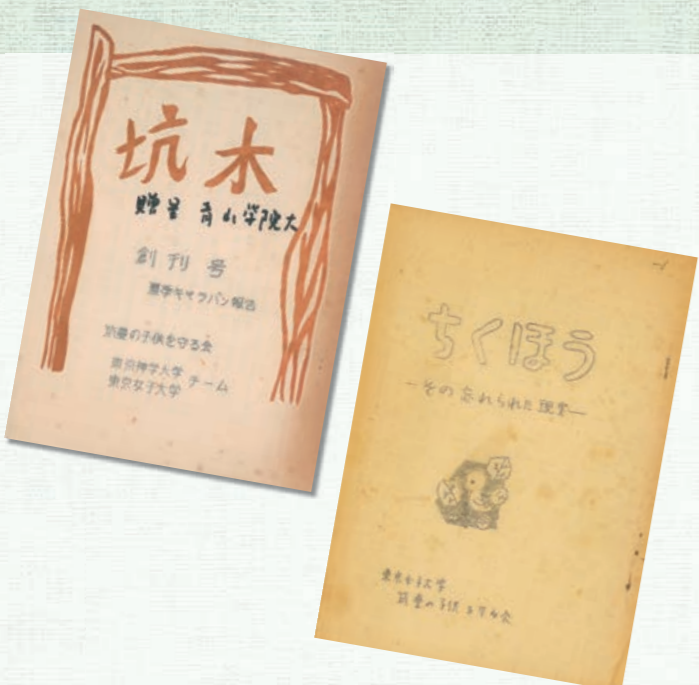 坑木
贈呈 青山学院大
創刊号
夏季キャラバン報告
筑豊の子供を守る会
東京神学大学
東京女子大学 チーム
ちくほう
―その忘れられた現実―
東京女子大学
筑豊の子供を守る会